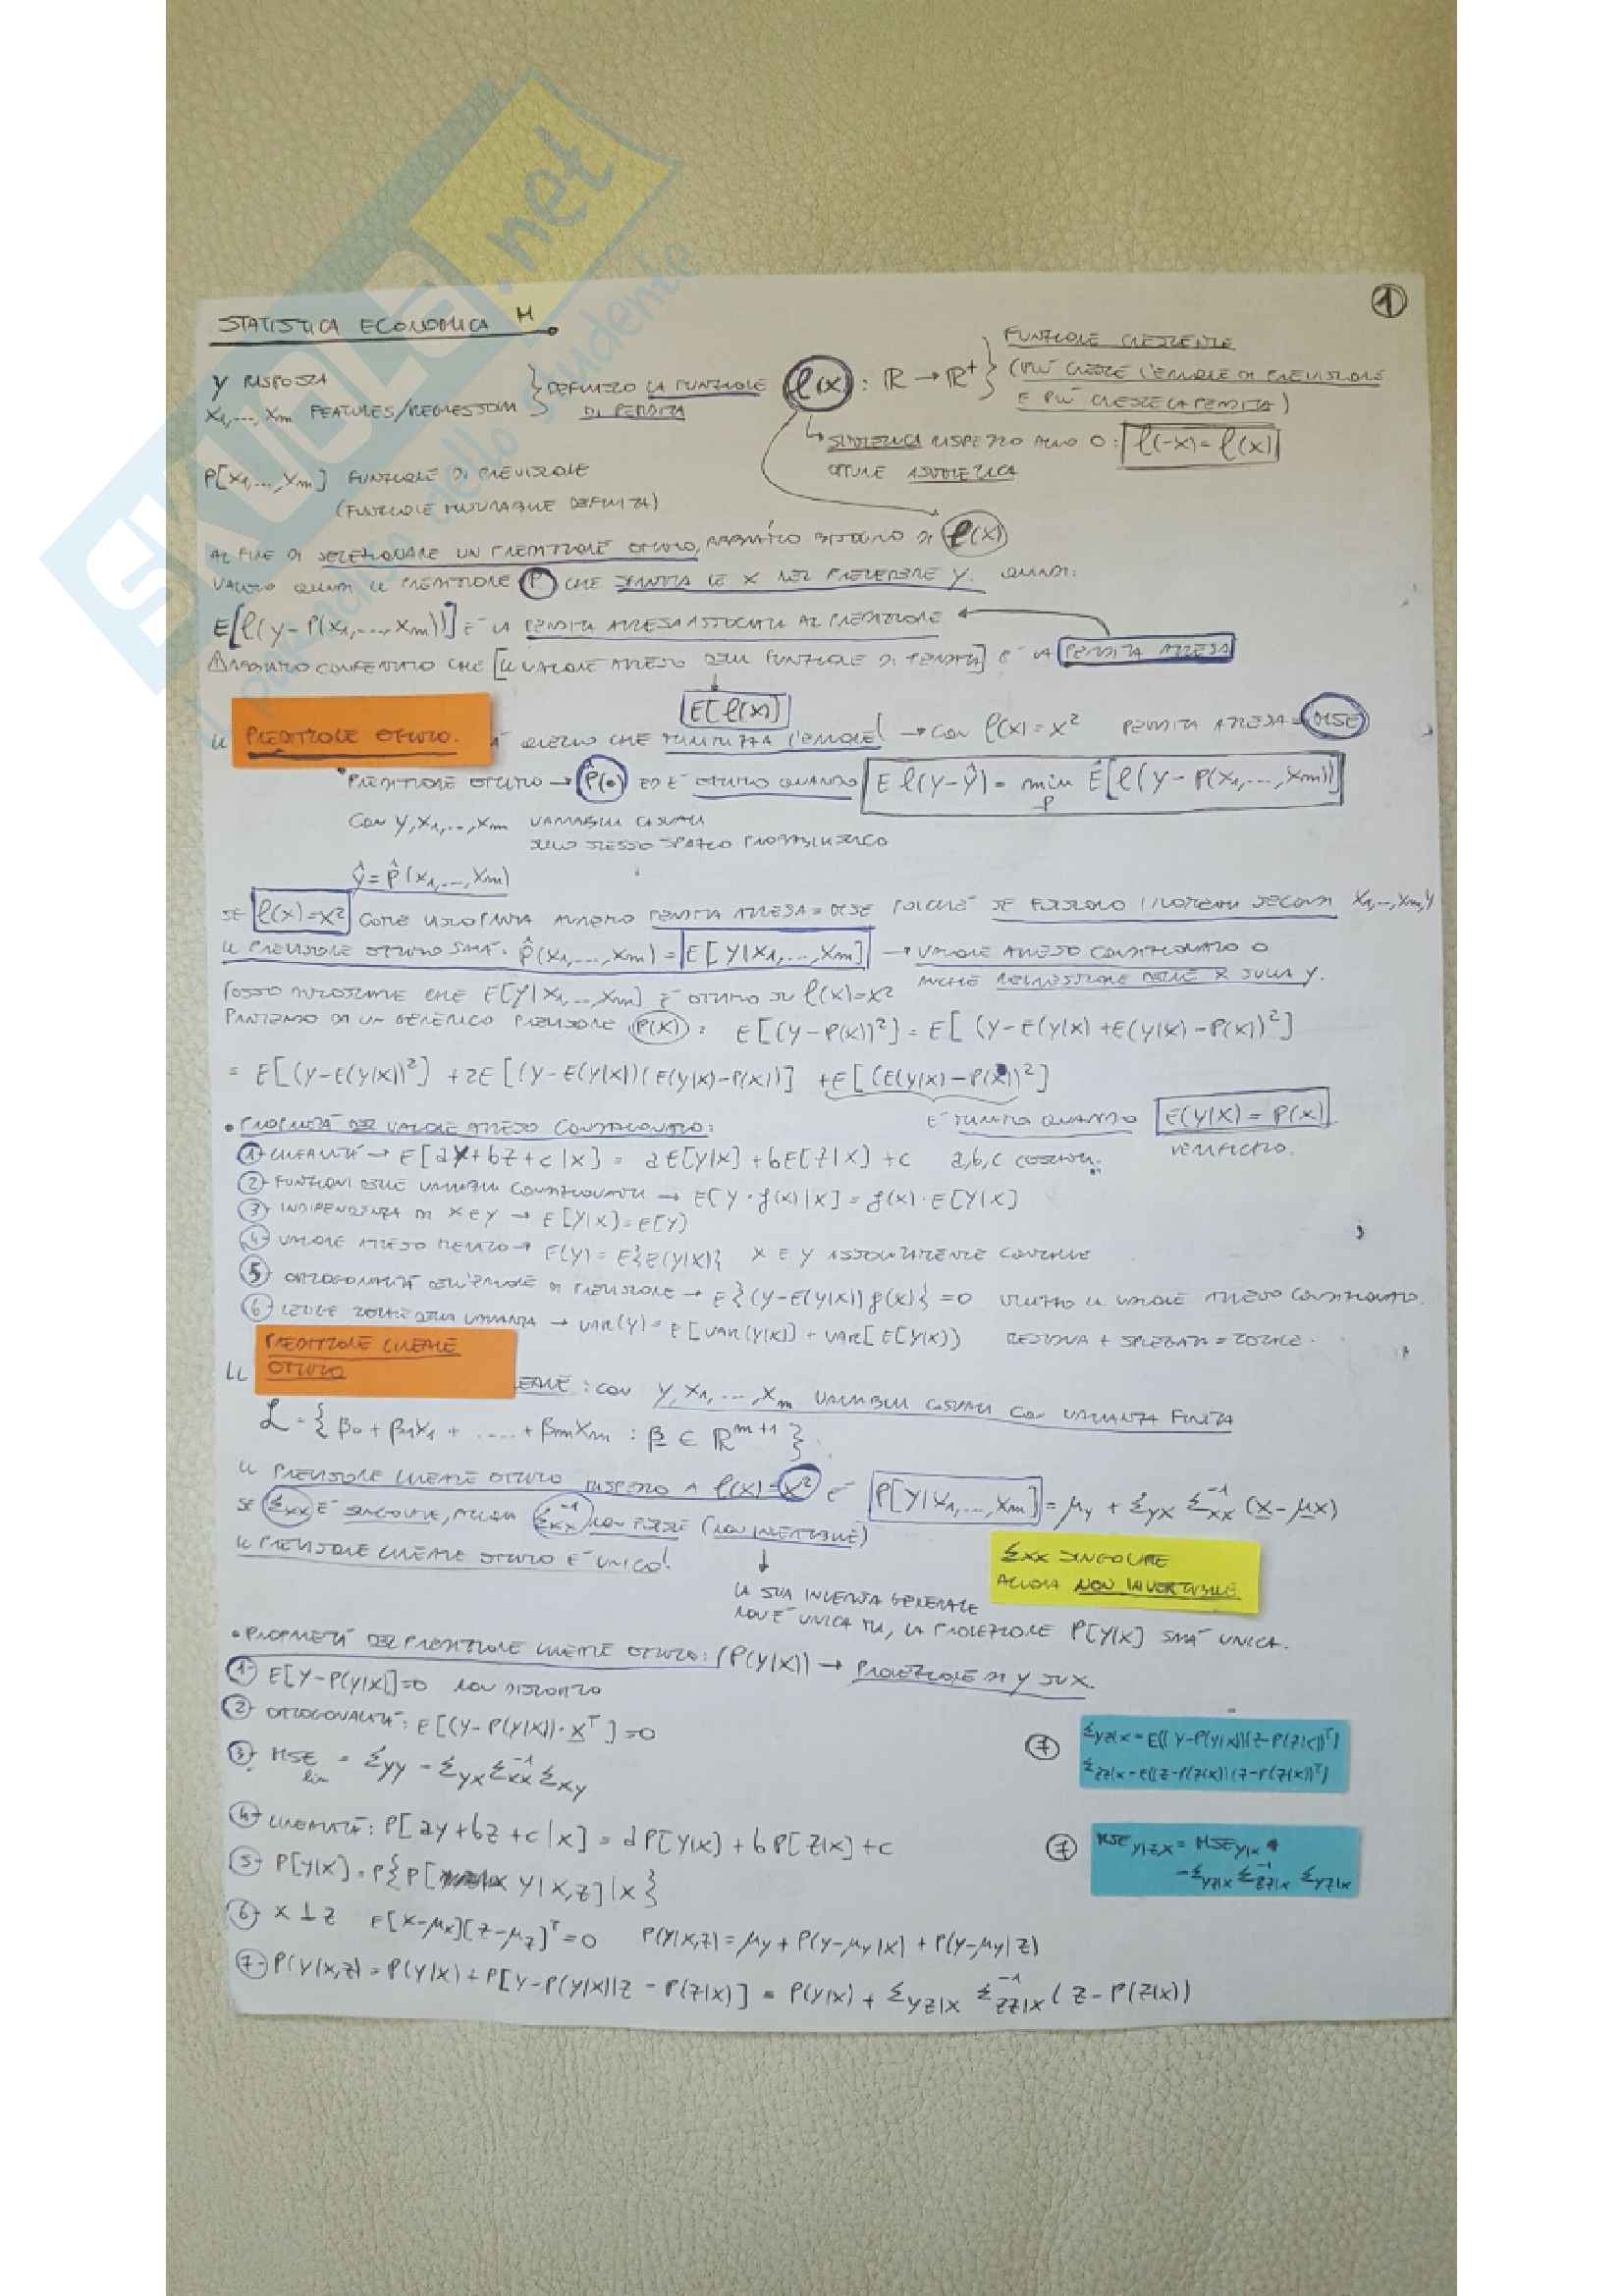 SKUOLA.net
il paradiso dello studente
1
STATISTICA ECONOMICA M
Y RISPOSTA
X1,...,Xm FEATURES/REGRESSORI } DEFINISCO LA FUNZIONE DI PERDITA l(x): ℝ→ℝ+ } FUNZIONE CRESCENTE
(PIÙ CRESCE L'ERRORE DI PREVISIONE
E PIÙ CRESCE LA PERDITA)
↳ SIMMETRICA RISPETTO ALLO 0: l(-x)=l(x)
OPPURE ASIMMETRICA
P[X1,...,Xm] FUNZIONE DI PREVISIONE
(FUNZIONE MISURABILE DEFINITA)
AL FINE DI SELEZIONARE UN PREDITTORE OTTIMO, ABBIAMO BISOGNO DI l(x)
QUINDI IL PREDITTORE P CHE SFRUTTA LE X NEL PREVEDERE Y. QUINDI:
E[l(Y-P(X1,...,Xm))] È LA PERDITA ATTESA ASSOCIATA AL PREDITTORE
CHE [IL VALORE ATTESO DELLA FUNZIONE DI PERDITA] È LA PERDITA ATTESA
E[l(x)]
IL PREDITTORE OTTIMO. È QUELLO CHE MINIMIZZA L'ERRORE! → CON l(x)=x² PERDITA ATTESA=MSE
PREDITTORE OTTIMO → P̂(•) ED È OTTIMO QUANDO E l(Y-Ŷ)= min P E[l(Y-P(X1,...,Xm))]
CON Y,X1,...,Xm VARIABILI CASUALI
SULLO STESSO SPAZIO PROBABILISTICO
Ŷ=P̂(X1,...,Xm)
SE l(x)=x² COME PERDITA AVREMO PERDITA ATTESA=MSE POICHÉ SE ESISTONO I MOMENTI SECONDI X1,...,Xm,Y
IL PREVISORE OTTIMO SARÀ: P̂(X1,...,Xm)=E[Y|X1,...,Xm] → VALORE ATTESO CONDIZIONATO O
ANCHE REGRESSIONE DELLE X SULLA Y.
POSSO DIMOSTRARE CHE E[Y|X1,...,Xm] È OTTIMO SU l(x)=x²
PARTENDO DA UN GENERICO PREVISORE P(X): E[(Y-P(X))²]=E[(Y-E(Y|X)+E(Y|X)-P(X))²]
= E[(Y-E(Y|X))²] +2E[(Y-E(Y|X))(E(Y|X)-P(X))] +E[(E(Y|X)-P(X))²]
È MINIMO QUANDO E(Y|X)=P(X)
VERIFICATO.
• PROPRIETÀ DEL VALORE ATTESO CONDIZIONATO:
1- LINEARITÀ → E[aY+bZ+c|X] = aE[Y|X]+bE[Z|X]+c a,b,c COSTANTI.
2- FUNZIONI DELLE VARIABILI CONDIZIONANTI → E[Y·g(X)|X]=g(X)·E[Y|X]
3- INDIPENDENZA DI X E Y → E[Y|X]=E(Y)
4- VALORE ATTESO ITERATO → E(Y)=E{E(Y|X)} X E Y ASSOLUTAMENTE CONTINUE
5- ORTOGONALITÀ DELL'ERRORE DI PREVISIONE → E{(Y-E(Y|X))g(X)}=0 SFRUTTO IL VALORE ATTESO CONDIZIONATO.
6- LEGGE TOTALE DELLA VARIANZA → VAR(Y)=E[VAR(Y|X)]+VAR[E[Y|X]) RESIDUA + SPIEGATA = TOTALE.
IL PREDITTORE LINEARE OTTIMO
EARE: CON Y,X1,...,Xm VARIABILI CASUALI CON VARIANZA FINITA
L={β0+β1X1+....+βmXm : β ∈ ℝ^m+1}
IL PREVISORE LINEARE OTTIMO RISPETTO A l(x)=x² È P[Y|X1,...,Xm]=μy+Σyx Σxx⁻¹(x-μx)
SE Σxx È SINGOLARE, ALLORA Σxx⁻¹ NON ESISTE (NON INVERTIBILE)
IL PREVISORE LINEARE OTTIMO È UNICO!
↓
LA SUA INVERSA GENERALE
NON È UNICA MA, LA PROIEZIONE P[Y|X] SARÀ UNICA.
Σxx SINGOLARE
ALLORA NON INVERTIBILE
• PROPRIETÀ DEL PREDITTORE LINEARE OTTIMO: (P(Y|X)) → PROIEZIONE DI Y SU X.
1- E[Y-P(Y|X)]=0 NON DISTORTO
2- ORTOGONALITÀ: E[(Y-P(Y|X))·Xᵀ]=0
3- MSE lin = Σyy-ΣyxΣxx⁻¹Σxy
4- LINEARITÀ: P[aY+bZ+c|X]=aP[Y|X]+bP[Z|X]+c
5- P[Y|X]=P{P[Y|X,Z]|X}
6- X⊥Z E[X-μx][Z-μz]ᵀ=0 P(Y|X,Z)=μy+P(Y-μy|X)+P(Y-μy|Z)
7- P(Y|X,Z)=P(Y|X)+P[Y-P(Y|X)|Z-P(Z|X)]=P(Y|X)+Σyz|x Σzz|x⁻¹(Z-P(Z|X))
7 Σyz|x=E((Y-P(Y|X))(Z-P(Z|X))ᵀ)
Σzz|x=E((Z-P(Z|X))(Z-P(Z|X))ᵀ)
7 MSE y|zx = MSE y|x
-Σyz|x Σzz|x⁻¹ Σyz|x